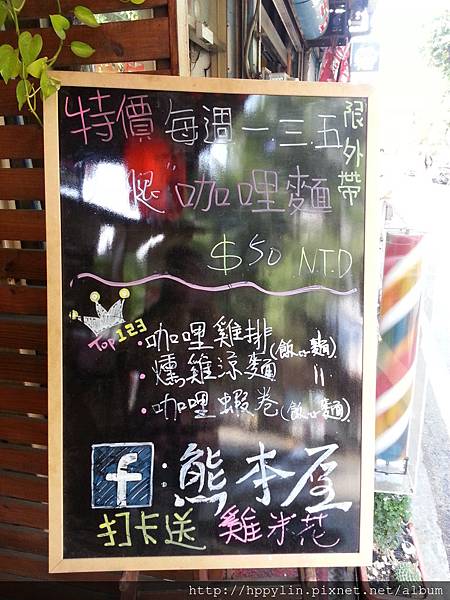 特價 每週一三五 限外帶
"咖哩麵
$50 N.T.D
Top 123
·咖哩雞排(飯or麵)
·燻雞涼麵 〃
·咖哩蝦卷(飯or麵)
f:熊本屋
打卡送 雞米花
http://hppylin.pixnet.net/album